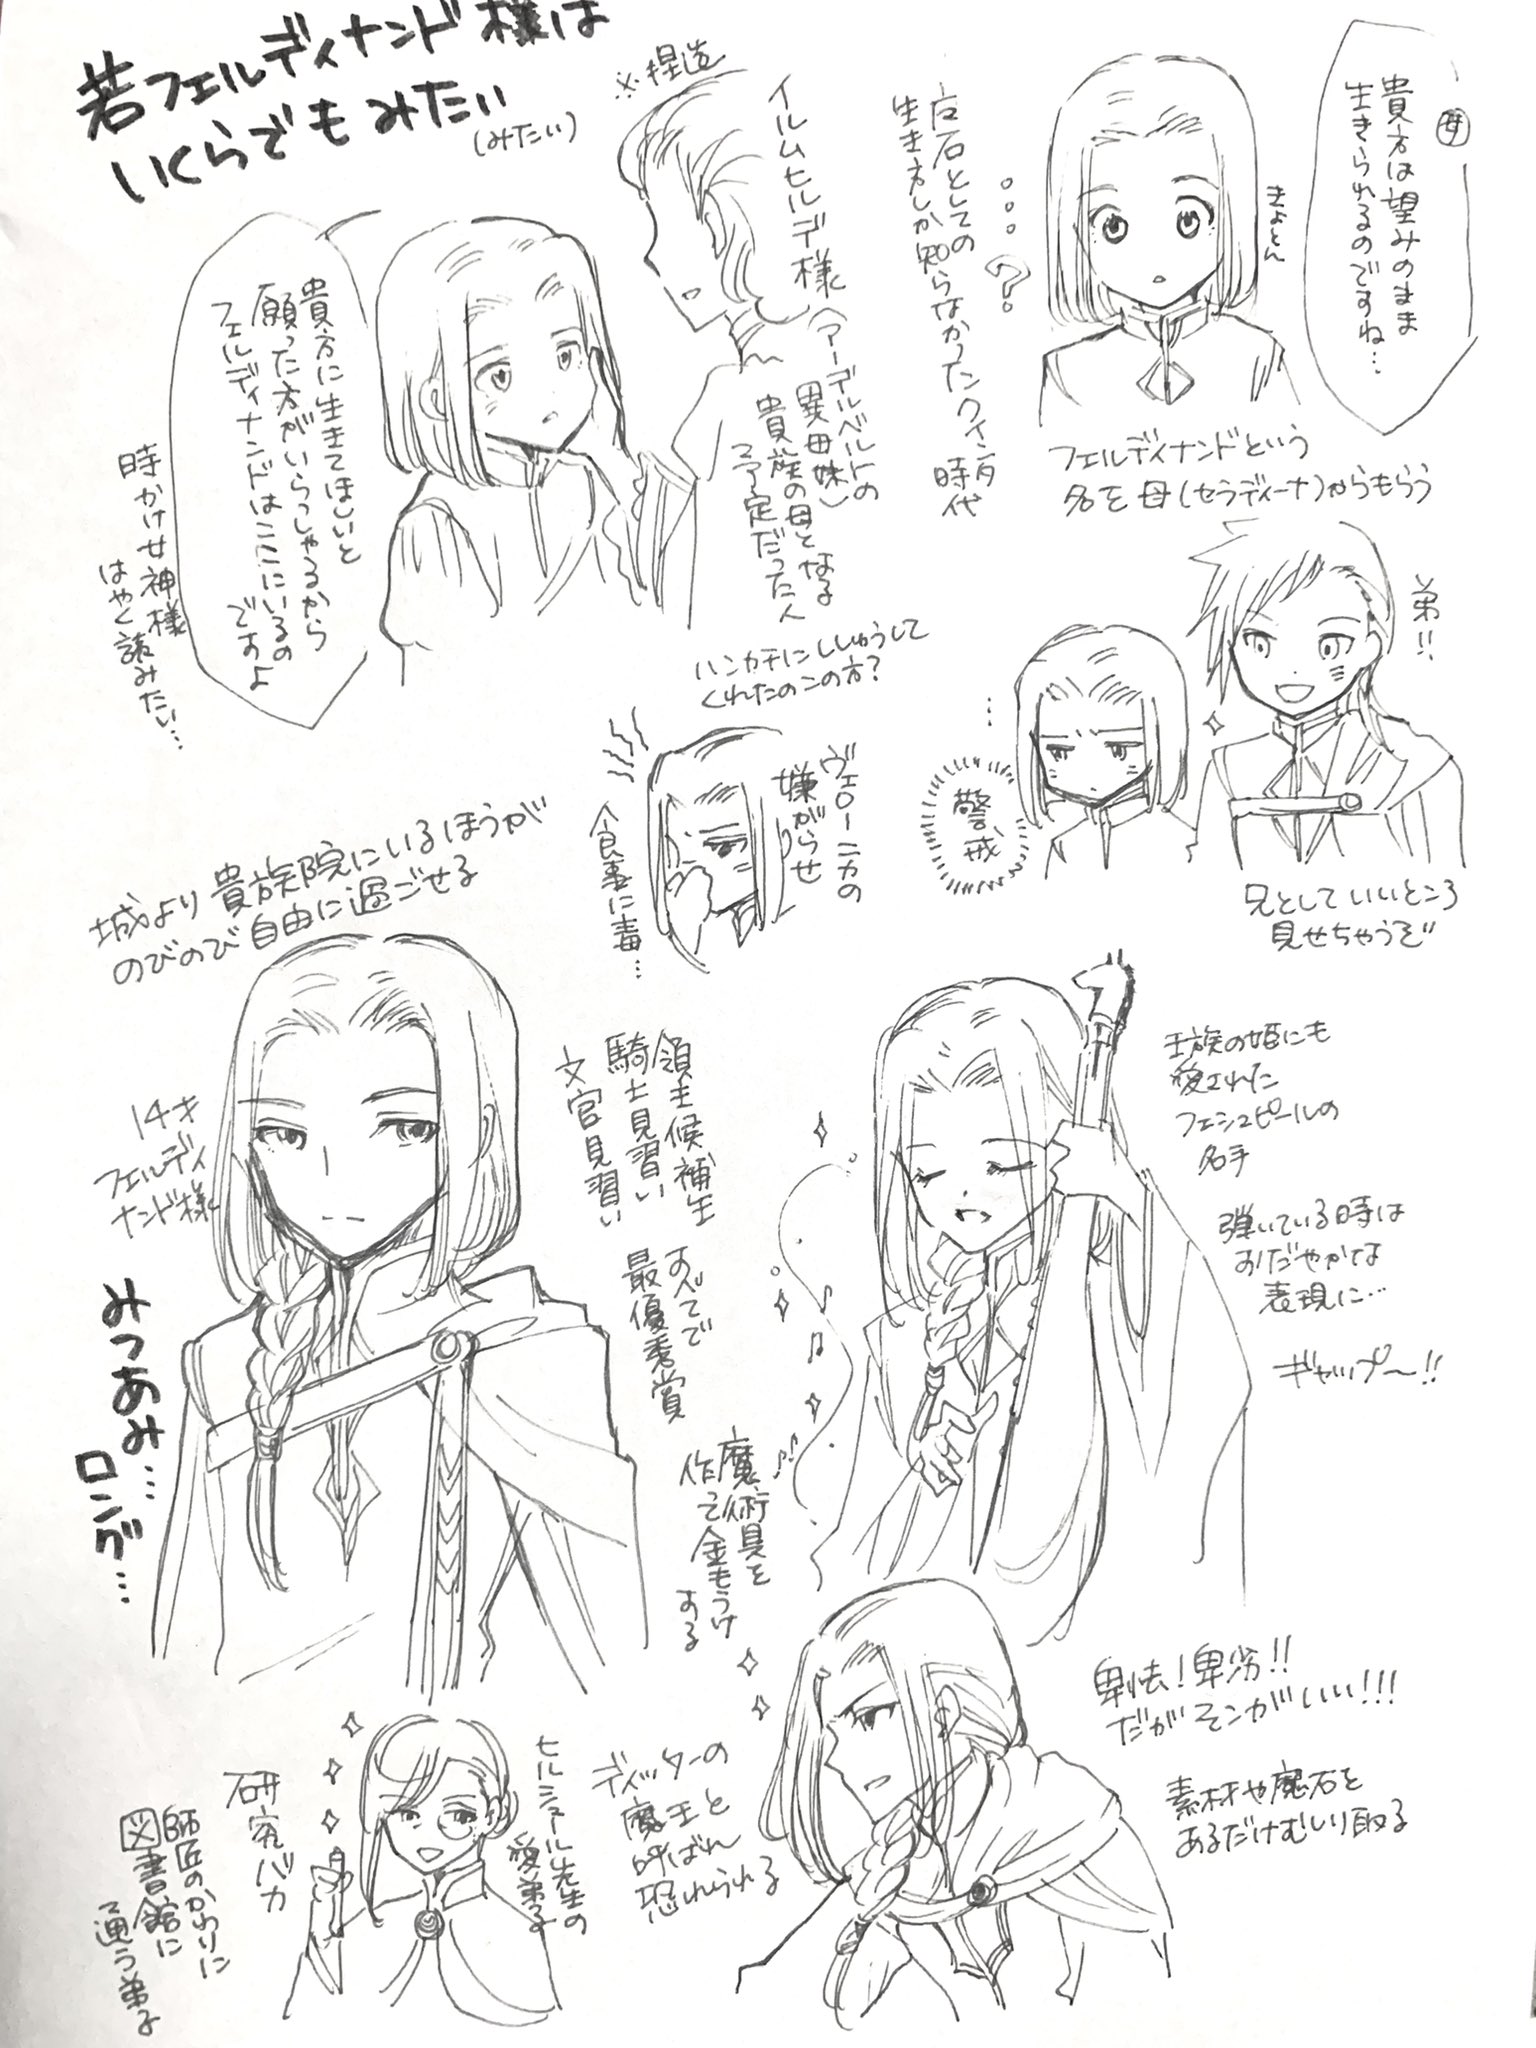 若フェルディナンド様は
いくらでもみたい
(みたい)
※捏造
母
貴方は望みのまま
生きられるのですね…
きょとん
…?
石としての
生き方しか知らなかったクインタ
時代
フェルディナンドという
名を母(セラディーナ)からもらう
イルムヒルデ様(アーデルベルトの
異母妹)
貴族の母となる
予定だった人
貴方に生きてほしいと
願った方がいらっしゃるから
フェルディナンドはここにいるの
ですよ
時かけ女神様
はやく読みたい…
ハンカチにししゅうして
くれたのこの方?
弟!!
…
警戒
兄としていいところ
見せちゃうぞ
ヴェローニカの
嫌がらせ
食事に毒…
城より貴族院にいるほうが
のびのび自由に過ごせる
14才
フェルディ
ナンド様
みつあみ…
ロング…
領主候補生
騎士見習い
文官見習い
すべてで
最優秀賞
王族の姫にも
愛された
フェシュピールの
名手
弾いている時は
おだやかな
表現に…
ギャップ〜!!
魔術具を
作って金もうけ
する
卑怯!卑劣!!
だがそこがいい!!!
素材や魔石を
あるだけむしり取る
ディッターの
魔王と
呼ばれ
恐れられる
ヒルシュール先生の
愛弟子
研究バカ
師匠のかわりに
図書館に
通う弟子